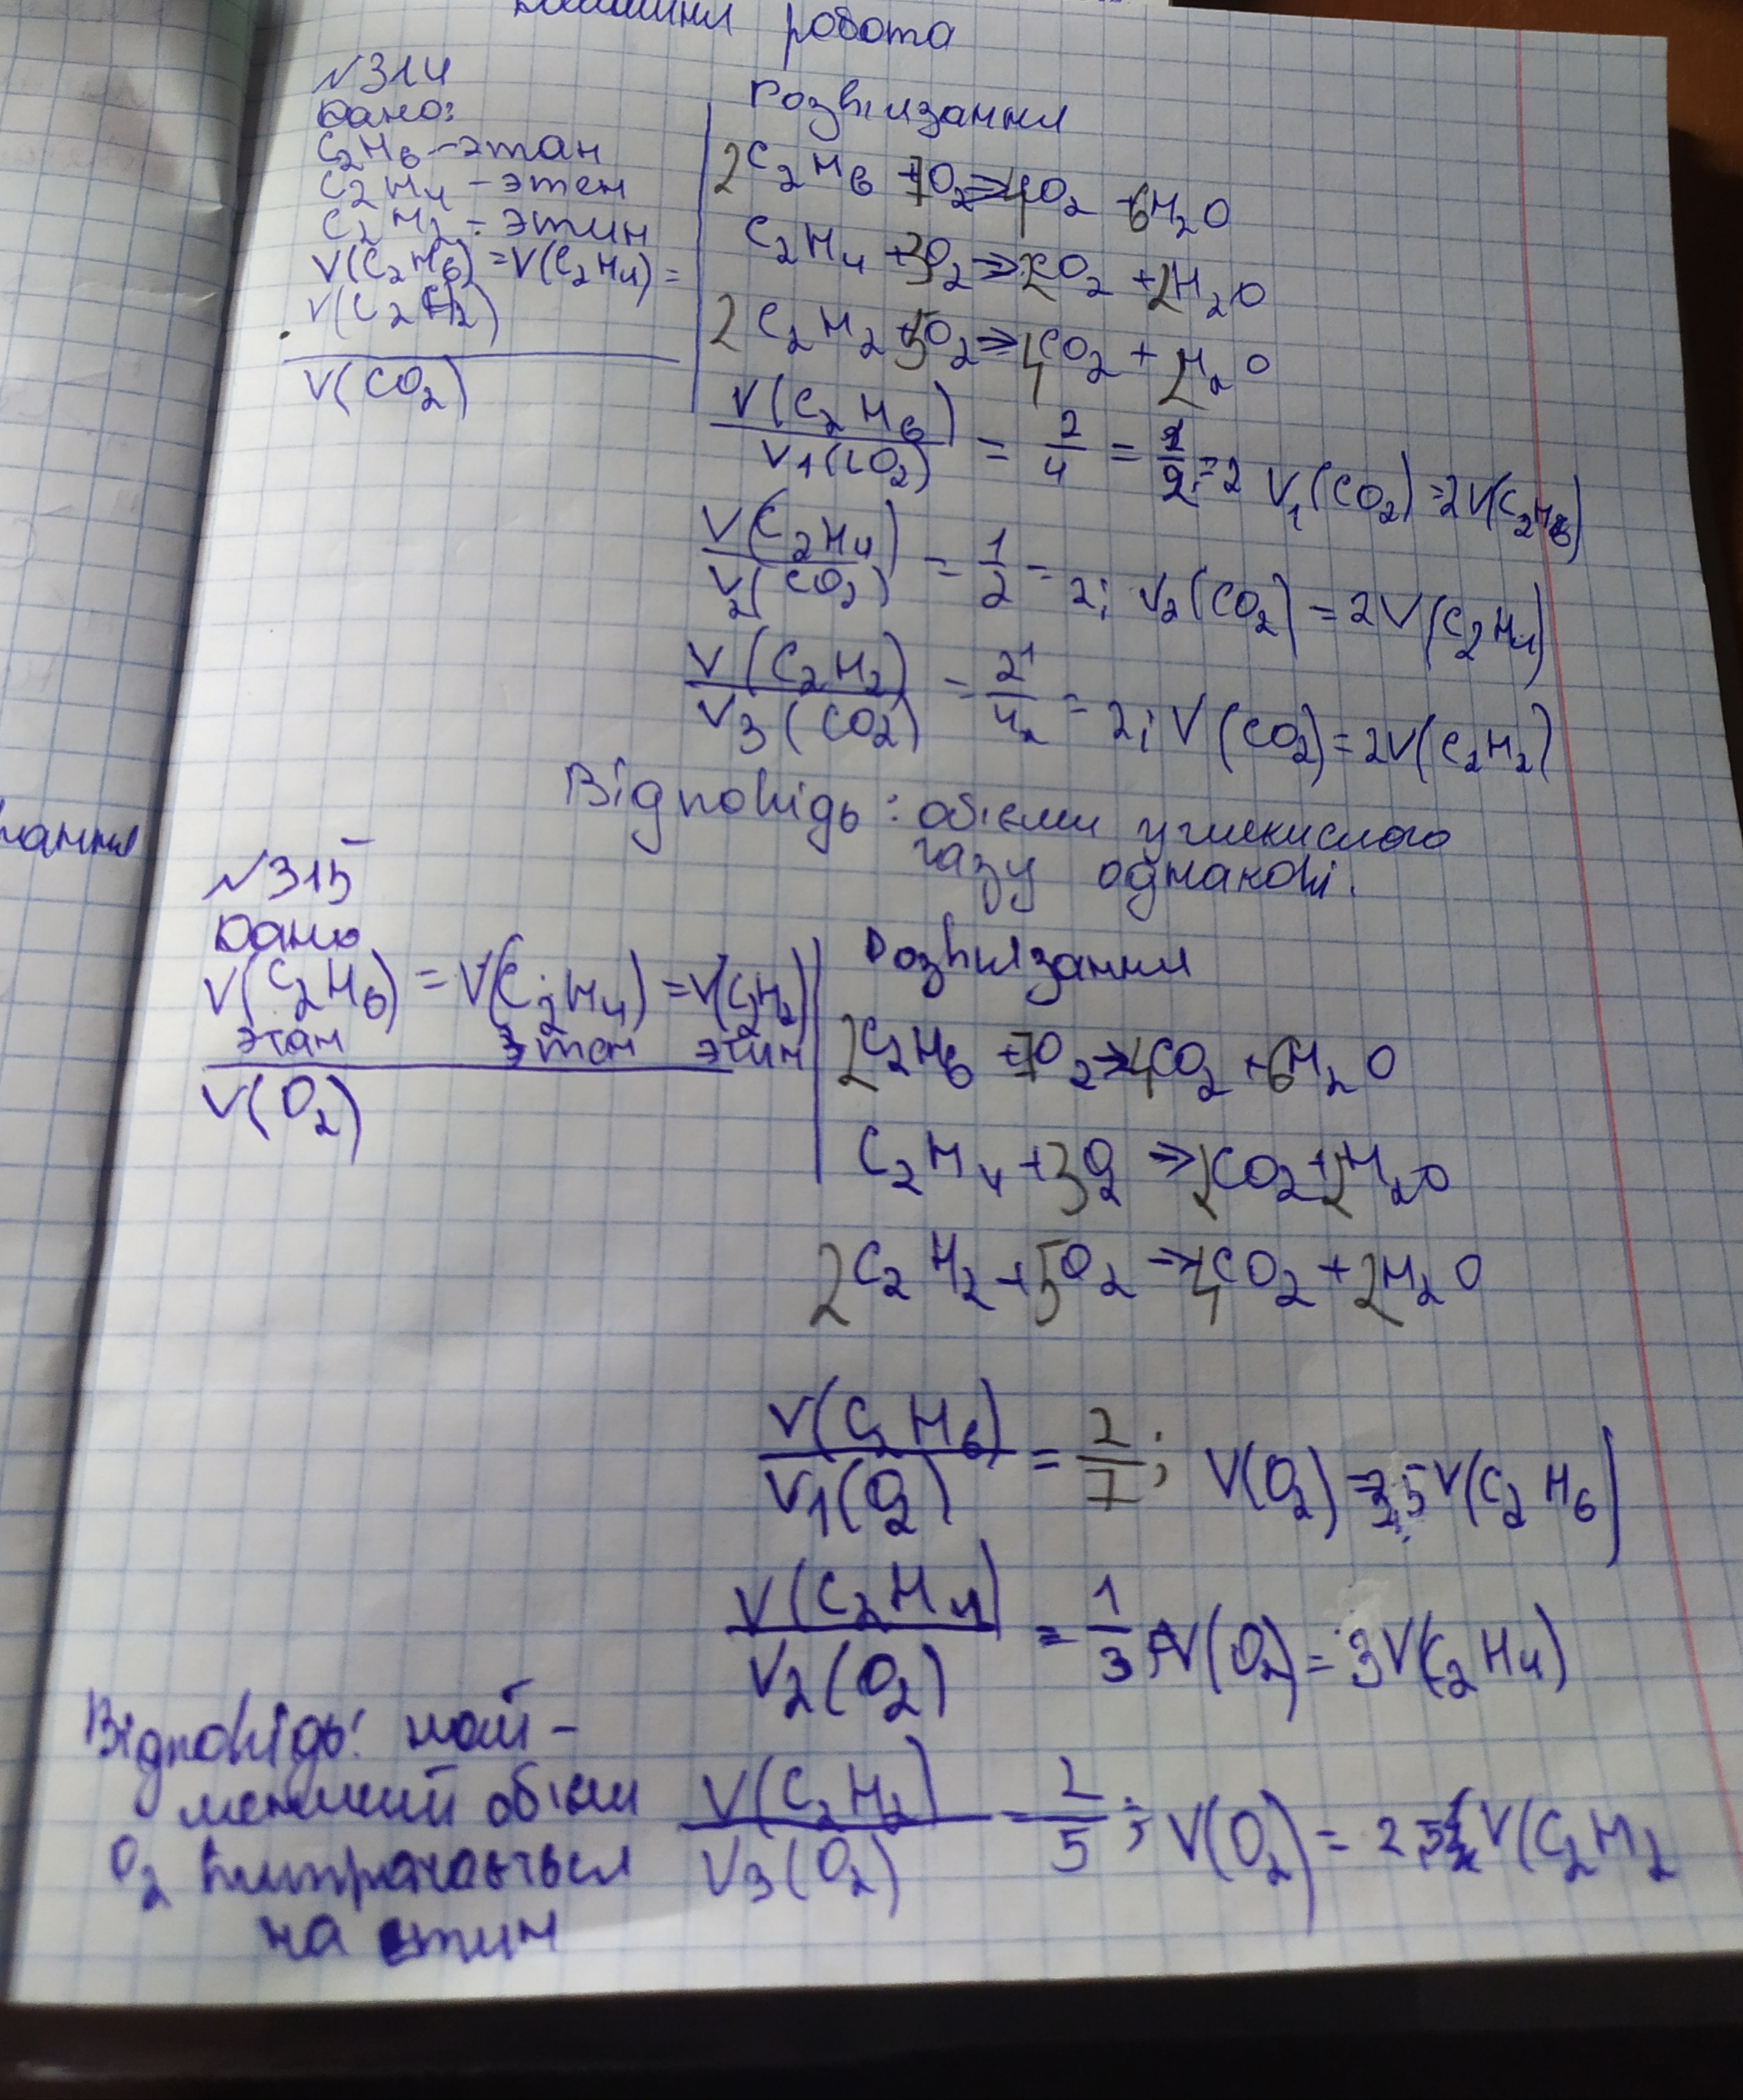 Домашня робота
№314
Дано:
C2H6 – этан
C2H4 – этен
C2H2 – этин
V(C2H6) = V(C2H4) =
V(C2H2)
V(CO2)
Розвязання
2C2H6 + 7O2 → 4CO2 + 6H2O
C2H4 + 3O2 → 2CO2 + 2H2O
2C2H2 + 5O2 → 4CO2 + 2H2O
V(C2H6) / V1(CO2) = 2/4 = 1/2 = 2 V1(CO2) = 2V(C2H6)
V(C2H4) / V2(CO2) = 1/2 = 2; V2(CO2) = 2V(C2H4)
V(C2H2) / V3(CO2) = 2 1/4 2 = 2; V(CO2) = 2V(C2H2)
Відповідь: обієми углекислого
газу однакові.
вання
№315
Дано
V(C2H6) = V(C2H4) = V(C2H2)
этан этен этин
V(O2)
Розвязання
2C2H6 + 7O2 → 4CO2 + 6H2O
C2H4 + 3O2 → 2CO2 + 2H2O
2C2H2 + 5O2 → 4CO2 + 2H2O
V(C2H6) / V1(O2) = 2/7; V(O2) = 3,5V(C2H6)
V(C2H4) / V2(O2) = 1/3; V(O2) = 3V(C2H4)
V(C2H2) / V3(O2) = 2/5; V(O2) = 2,5V(C2H2
Відповідь: най-
менший обієм
O2 витрачається
на етин